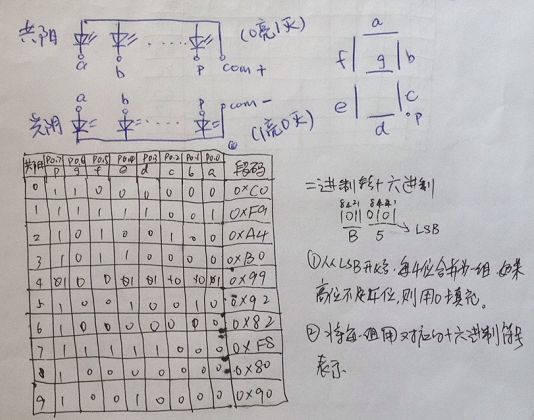 共阳 (0亮1灭)
a b p com+
a
f g b
e c
d p
共阴 a b p com- (1亮0灭)
共阳 P0.7 P0.6 P0.5 P0.4 P0.3 P0.2 P0.1 P0.0 段码
p g f e d c b a
0 1 1 0 0 0 0 0 0 0xC0
1 1 1 1 1 1 0 0 1 0xF9
2 1 0 1 0 0 1 0 0 0xA4
3 1 0 1 1 0 0 0 0 0xB0
4 1 0 0 1 1 0 0 1 0x99
5 1 0 0 1 0 0 1 0 0x92
6 1 0 0 0 0 0 1 0 0x82
7 1 1 1 1 1 0 0 0 0xF8
8 1 0 0 0 0 0 0 0 0x80
9 1 0 0 1 0 0 0 0 0x90
二进制转十六进制
8421 8421
1011 0101
B 5 LSB
①从LSB开始,每4位合并为一组,如果
高位不足4位,则用0填充。
②将每一组用对应的十六进制符号
表示.